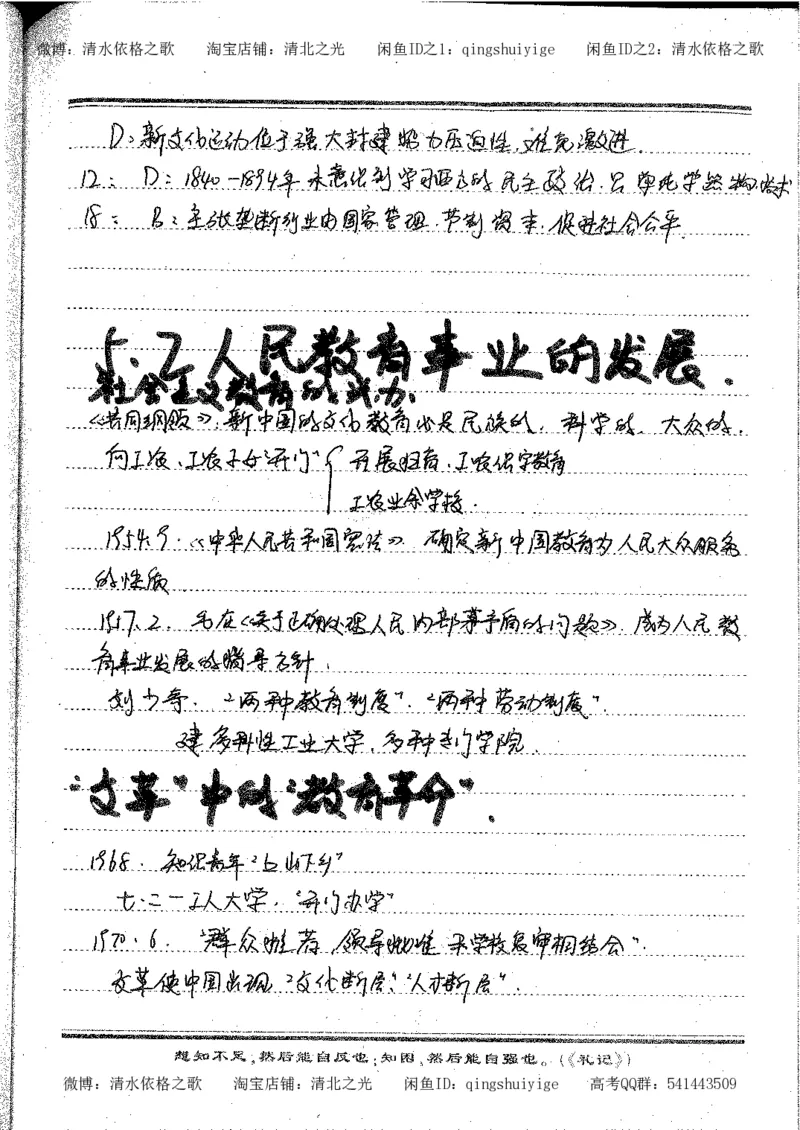 微博：清水依格之歌 淘宝店铺：清北之光 闲鱼ID之1：qingshuiyige 闲鱼ID之2：清水依格之歌
D：新文化运动位于强大封建势力压迫性，难免激进.
12： D：1840—1894年未意识到学习西方的民主政治.只单纯学器物技术
18： B：主张垄断行业由国家管理.节制资本.促进社会公平.
5.2人民教育事业的发展.
社会主义教育的成功.
《共同纲领》：新中国的文化教育必是民族的、科学的、大众的.
向工农、工农子女"开门"{ 开展妇育、工农识字教育
工农业余学校.
1954.9.《中华人民共和国宪法》.确定新中国教育为人民大众服务
的性质
1957.2. 毛在《关于正确处理人民内部矛盾的问题》.成为人民教
育事业发展的指导方针.
刘少奇."两种教育制度"."两种劳动制度".
建多科性工业大学.多种专门学院.
"文革"中的"教育革命".
1968. 知识青年"上山下乡"
七·二一工人大学."开门办学"
1970.6. "群众推荐,领导批准 和学校复审相结合".
文革使中国出现"文化断层""人才断层".
知不足,然后能自反也;知困,然后能自强也。(《礼记》)
微博：清水依格之歌 淘宝店铺：清北之光 闲鱼ID：qingshuiyige 高考QQ群：541443509